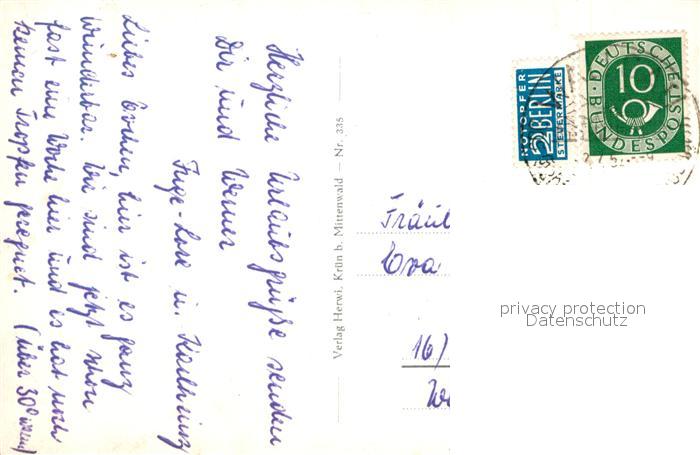 Liebes Evchen, hier ist es ganz
wunderbar. Wir sind jetzt schon
fast eine Woche hier und es hat noch
keinen Tropfen geregnet. (Über 30° warm)
Herzliche Urlaubsgrüße senden
Dir und Werner
Inge-Lore u. Karlheinz
Verlag Herwi, Krün b. Mittenwald — Nr. 335
NOTOPFER
2 BERLIN
STEUERMARKE
DEUTSCHE
BUNDESPOST
10
Fräul
Eva
16)
privacy protection
Datenschutz